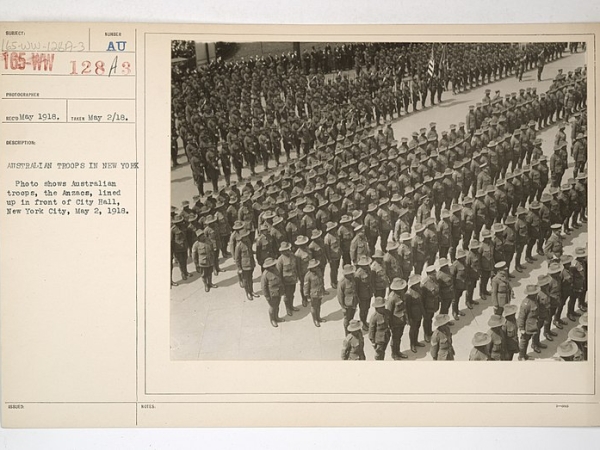 SUBJECT:
NUMBER
165-WW-128A-3
AU
165-WW 128A3
PHOTOGRAPHER
REC'D May 1918. TAKEN May 2/18.
DESCRIPTION:
AUSTRALIAN TROOPS IN NEW YORK
Photo shows Australian
troops, the Anzacs, lined
up in front of City Hall,
New York City, May 2, 1918.
ISSUED:
NOTES.